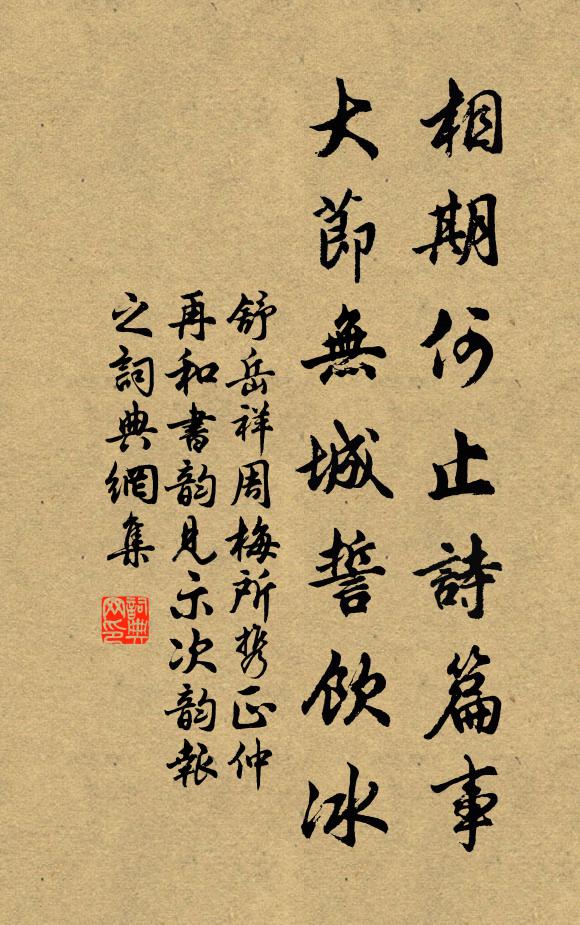 相期何止詩篇事
大節無城誓飲冰
舒岳祥周梅所携正仲
再和書韵見示次韵報
之詞典網集
詞典网印